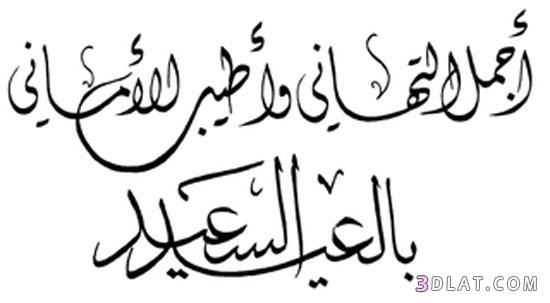 أجمل التهاني وأطيب الأماني
بالعيد السعيد
3DLAT.COM